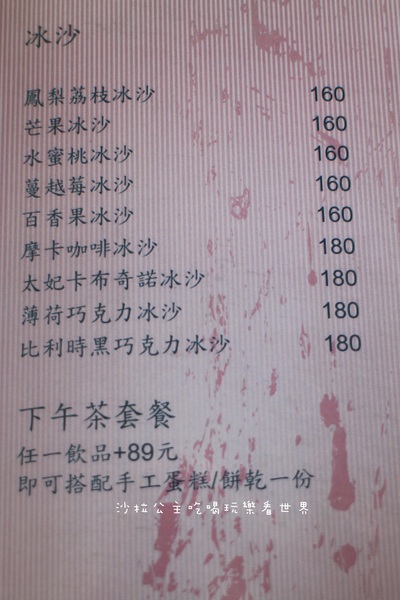 冰沙
鳳梨荔枝冰沙 160
芒果冰沙 160
水蜜桃冰沙 160
蔓越莓冰沙 160
百香果冰沙 160
摩卡咖啡冰沙 180
太妃卡布奇諾冰沙 180
薄荷巧克力冰沙 180
比利時黑巧克力冰沙 180
下午茶套餐
任一飲品+89元
即可搭配手工蛋糕/餅乾一份
沙拉公主吃喝玩樂看世界